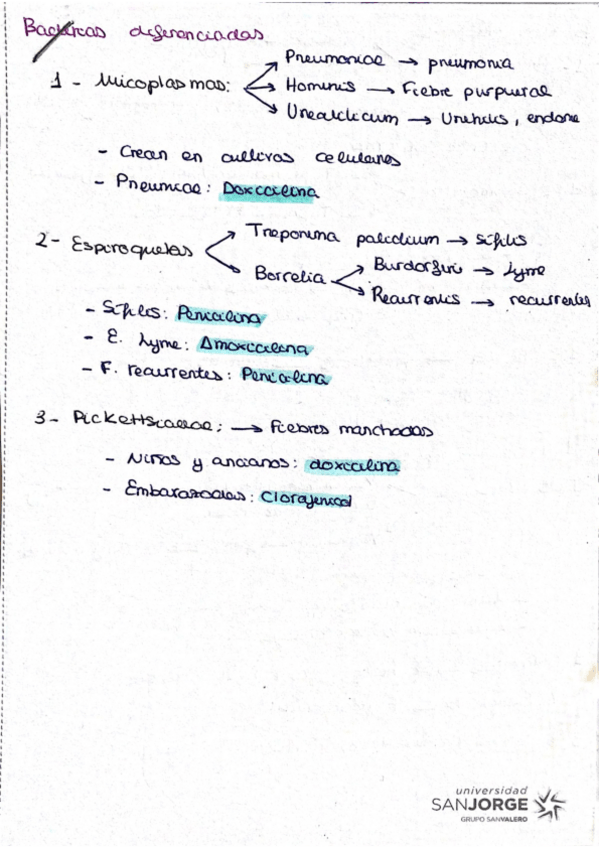 Bacterias diferenciadas
Pneumoniae → pneumonia
1 - Micoplasmas: Hominis → Fiebre purpural
Urealiticum → Uretritis, endome
- Crean en cultivos celulares
- Pneumicae: Doxiciclina
2 - Espiroquetas Treponima palidium → sífilis
Borrelia Burdorferi → Lyme
Recurrentis → recurrentes
- Sífilis: Penicilina
- E. Lyme: Amoxicilina
- F. recurrentes: Penicilina
3 - Rickettsiaceae: → Fiebres manchadas
- Niños y ancianos: doxiciclina
- Embarazadas: Clorafenicol
universidad
SANJORGE
GRUPO SANVALERO